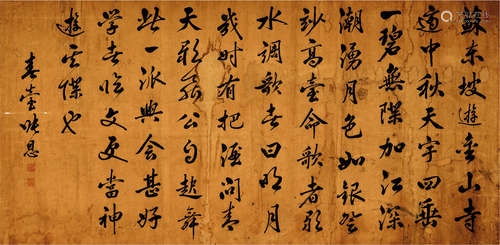 蘇東坡遊金山寺
適中秋天宇四垂
一碧無際加江深
潮湧月色如銀登
妙高臺命歌者歌
水調歌者曰明月
幾時有把酒問青
天歌罷公自起舞
此一派興會甚好
學者臨文更當神
遊雲際也
春臺 恩